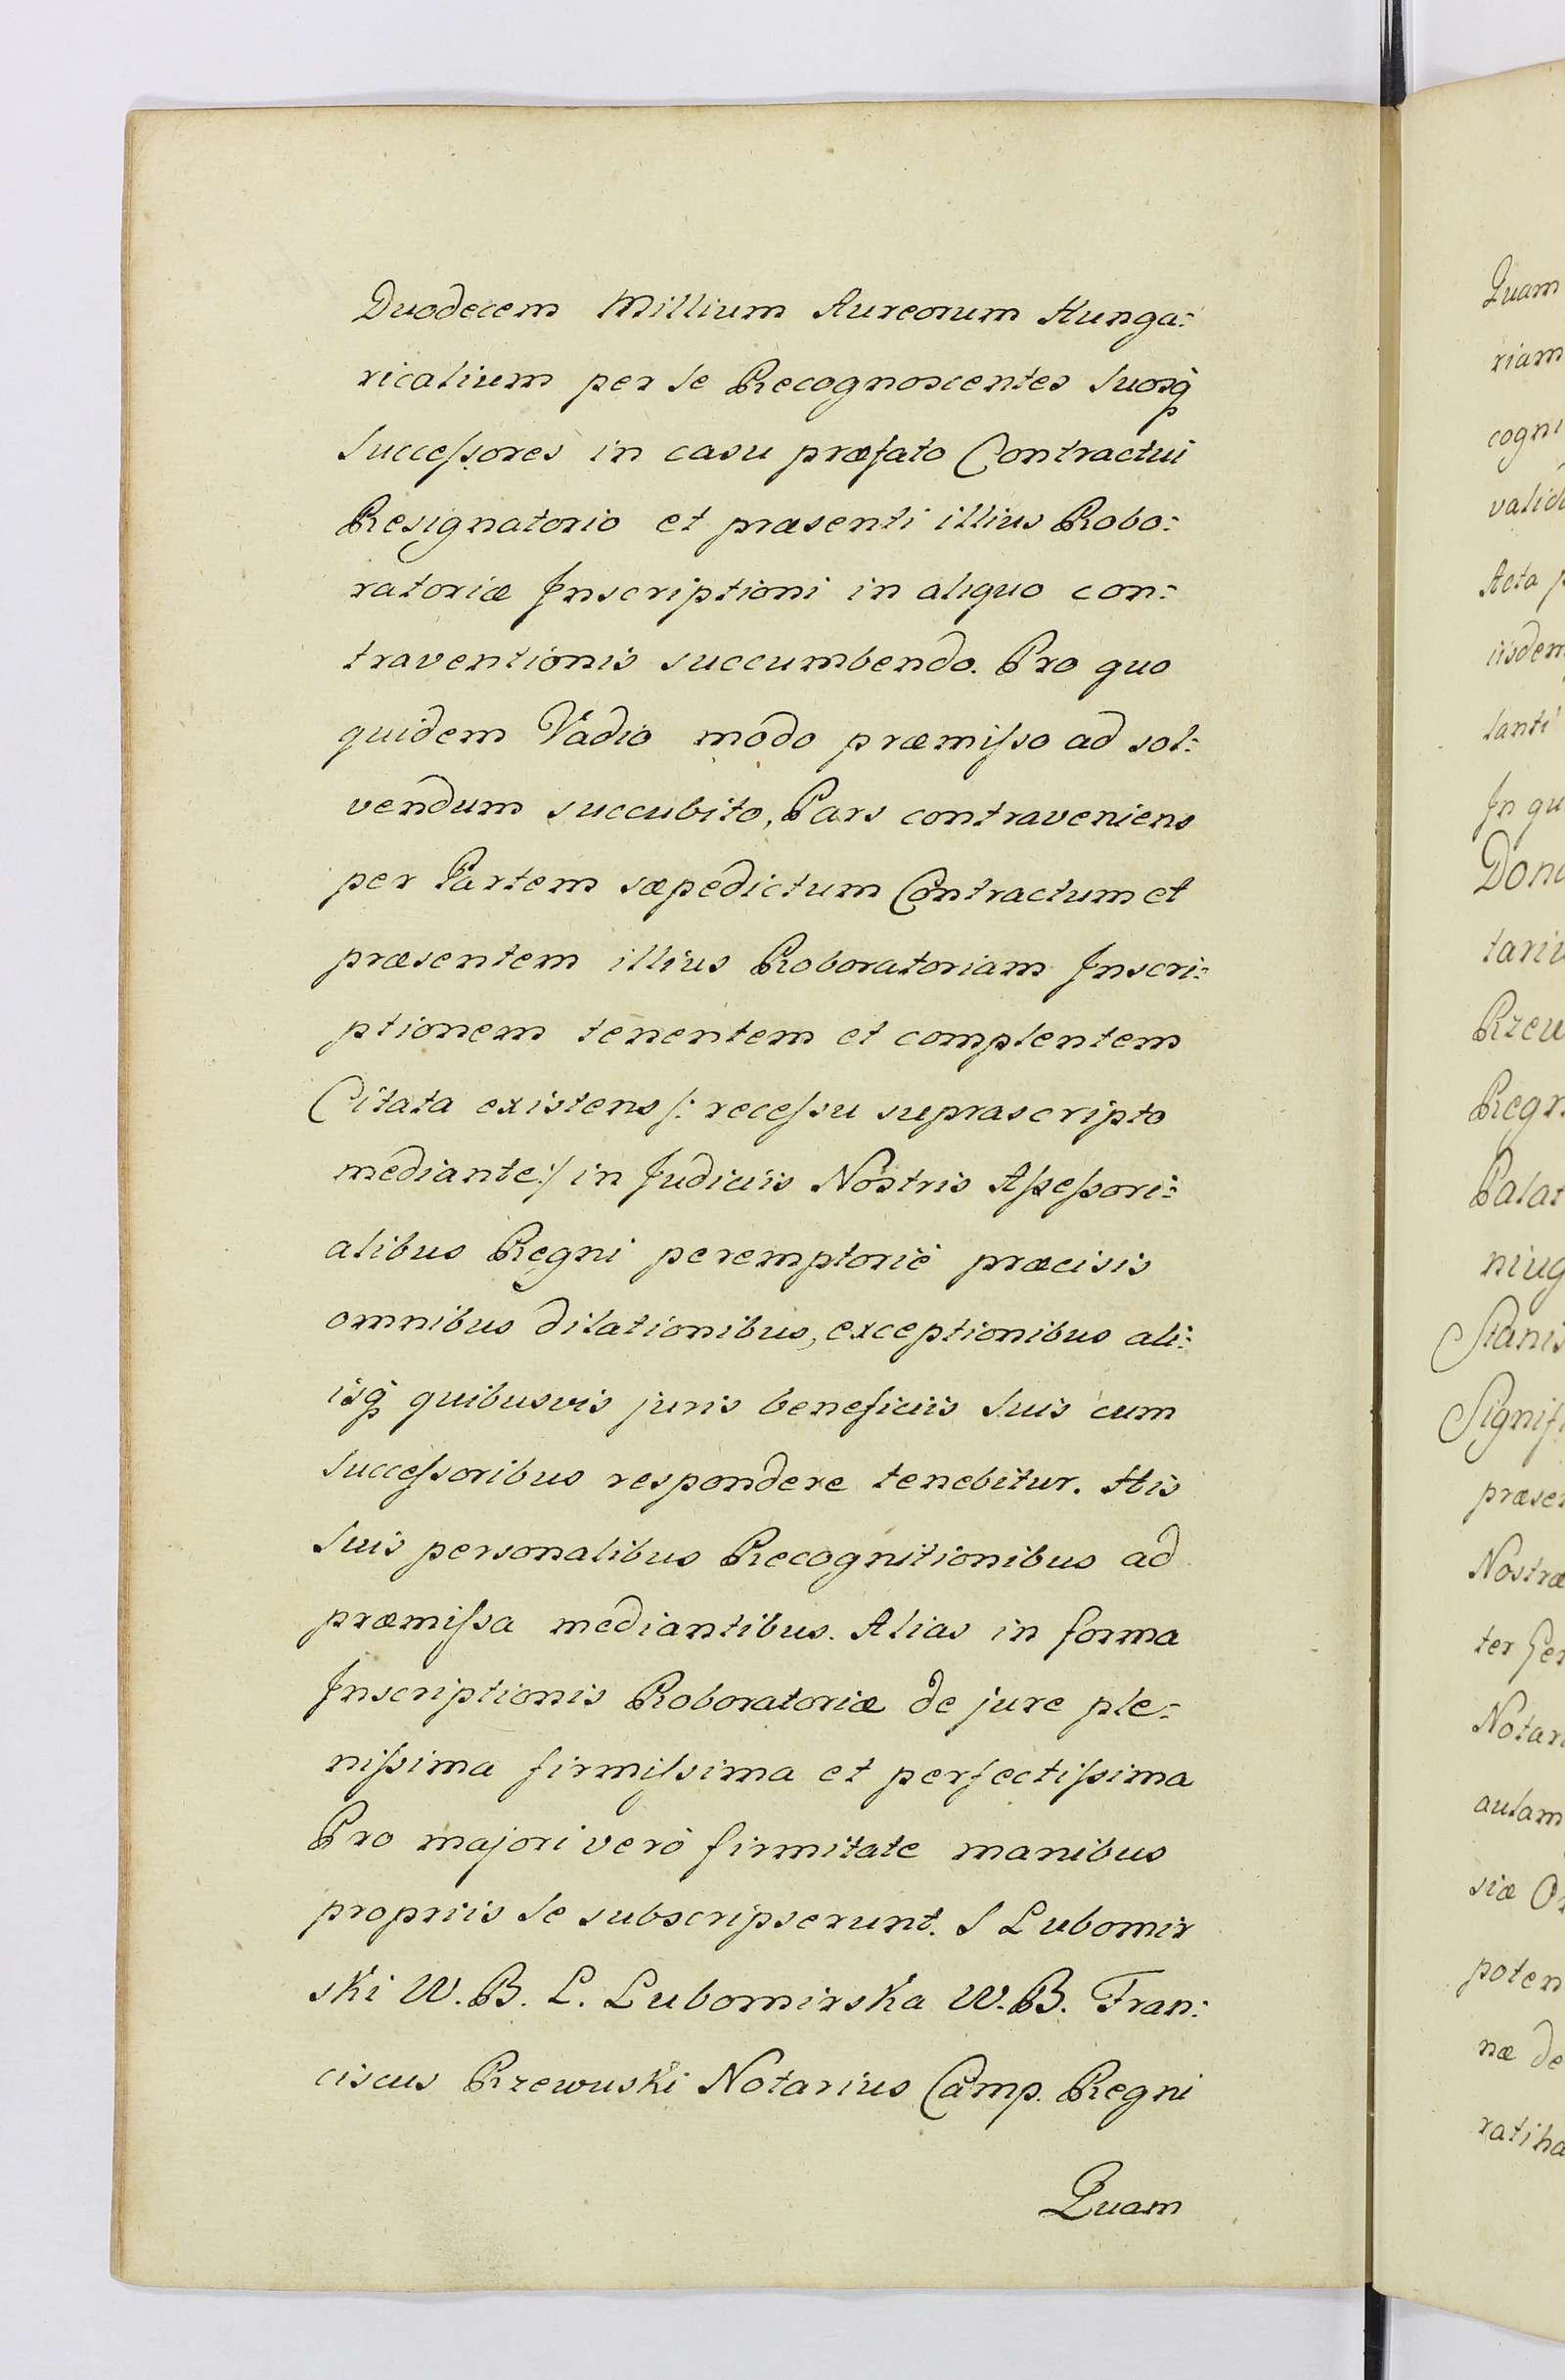 Duodecem Millium Aureorum Hunga:
ricalium per se Recognoscentes suosq̃
Successores in casu præfato Contractui
Resignatorio et præsenti illius Robo:
ratoriæ Inscriptioni in aliquo con:
traventionis succumbendo. Pro quo
quidem Vadio modo præmisso ad sol:
vendum succubito, Pars contraveniens
per Partem sæpedictum Contractum et
præsentem illius Roboratoriam Inscri:
ptionem tenentem et complentem
Citata existens /: recessu suprascripto
mediante :/ in Judiciis Nostris Assessori:
alibus Regni peremptoriè præcisis
omnibus dilationibus, exceptionibus ali:
isq̃ quibusvis juris beneficiis suis cum
successoribus respondere tenebitur. His
suis personalibus Recognitionibus ad
præmissa mediantibus. Alias in forma
Inscriptionis Roboratoriæ de jure ple:
nissima firmissima et perfectissima
Pro majori verò firmitate manibus
propriis se subscripserunt. S Lubomir
ski W. B. L. Lubomirska W. B. Fran:
ciscus Rzewuski Notarius Camp. Regni
Quam
Quam
riam
cogni
valid
Acta p
iisdem
lanti
In qu
Dona
tariu
Rzeu
Regn
Palat
niug
Stanis
Signifi
præsen
Nostræ
ter Gen
Notari
aulam
siæ Or
poten
næ de
ratiha